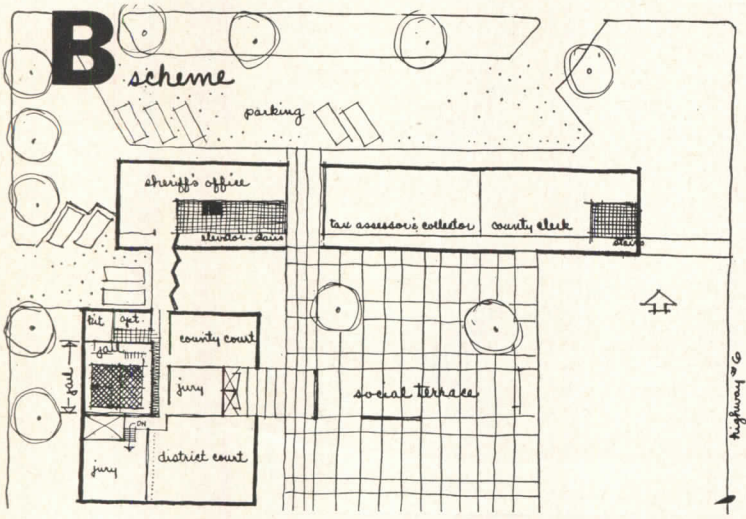 B
scheme
parking
sheriff's office
elevator - stairs
tax assessor & collector
county clerk
stairs
kit
apt.
jail
jail
county court
jury
social terrace
highway #6
DN
jury
district court